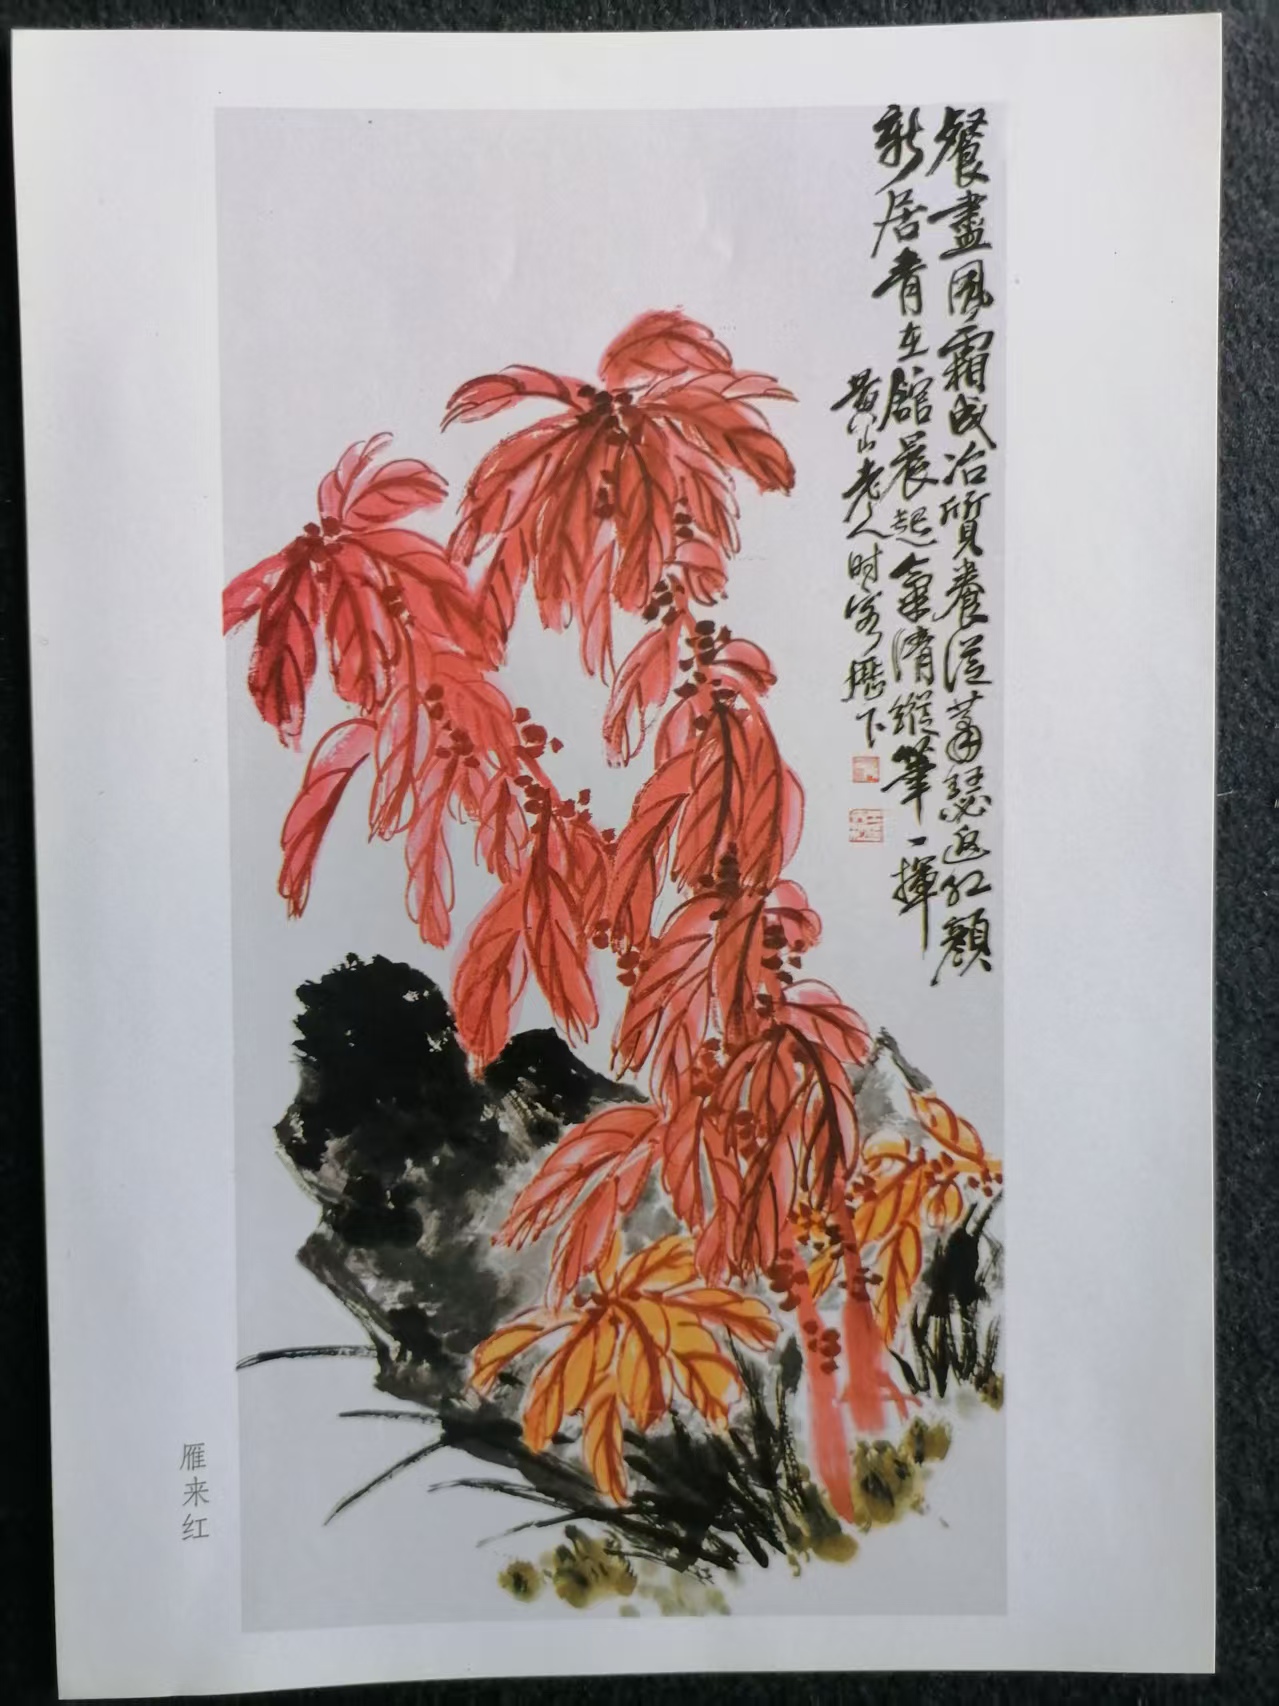 餐盡風霜成冶質養從蕭瑟返紅顏
新居青在館晨起氣清縱筆一揮
黃山老人时客歷下
雁来红